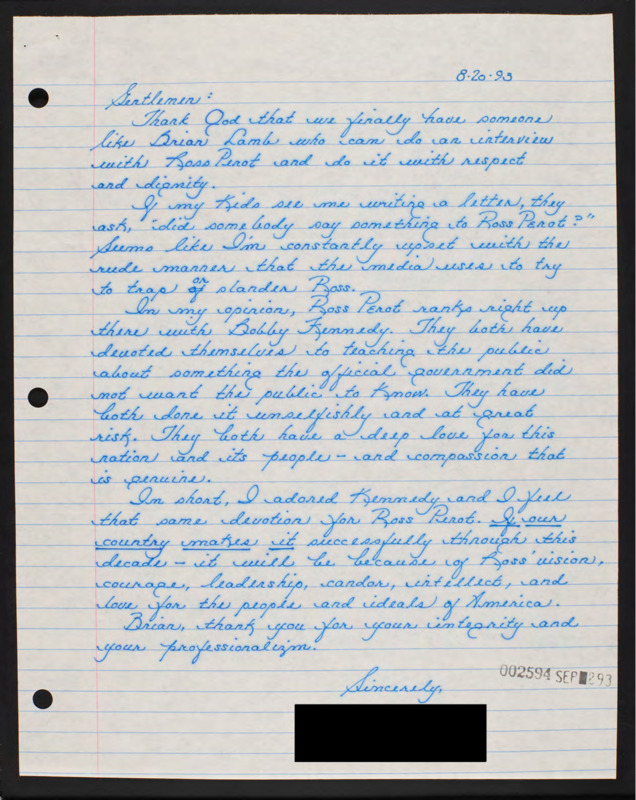 8-20-93
Gentlemen:
Thank God that we finally have someone
like Brian Lamb who can do an interview
with Ross Perot and do it with respect
and dignity.
If my kids see me writing a letter, they
ask, "did somebody say something to Ross Perot?"
Seems like I'm constantly upset with the
rude manner that the media uses to try
to trap or slander Ross.
In my opinion, Ross Perot ranks right up
there with Bobby Kennedy. They both have
devoted themselves to teaching the public
about something the official government did
not want the public to know. They have
both done it unselfishly and at great
risk. They both have a deep love for this
nation and its people - and compassion that
is genuine.
In short, I adored Kennedy and I feel
that same devotion for Ross Perot. If our
country makes it successfully through this
decade - it will be because of Ross' vision,
courage, leadership, candor, intellect, and
love for the people and ideals of America.
Brian, thank you for your integrity and
your professionalizm.
Sincerely,
002594 SEP 893